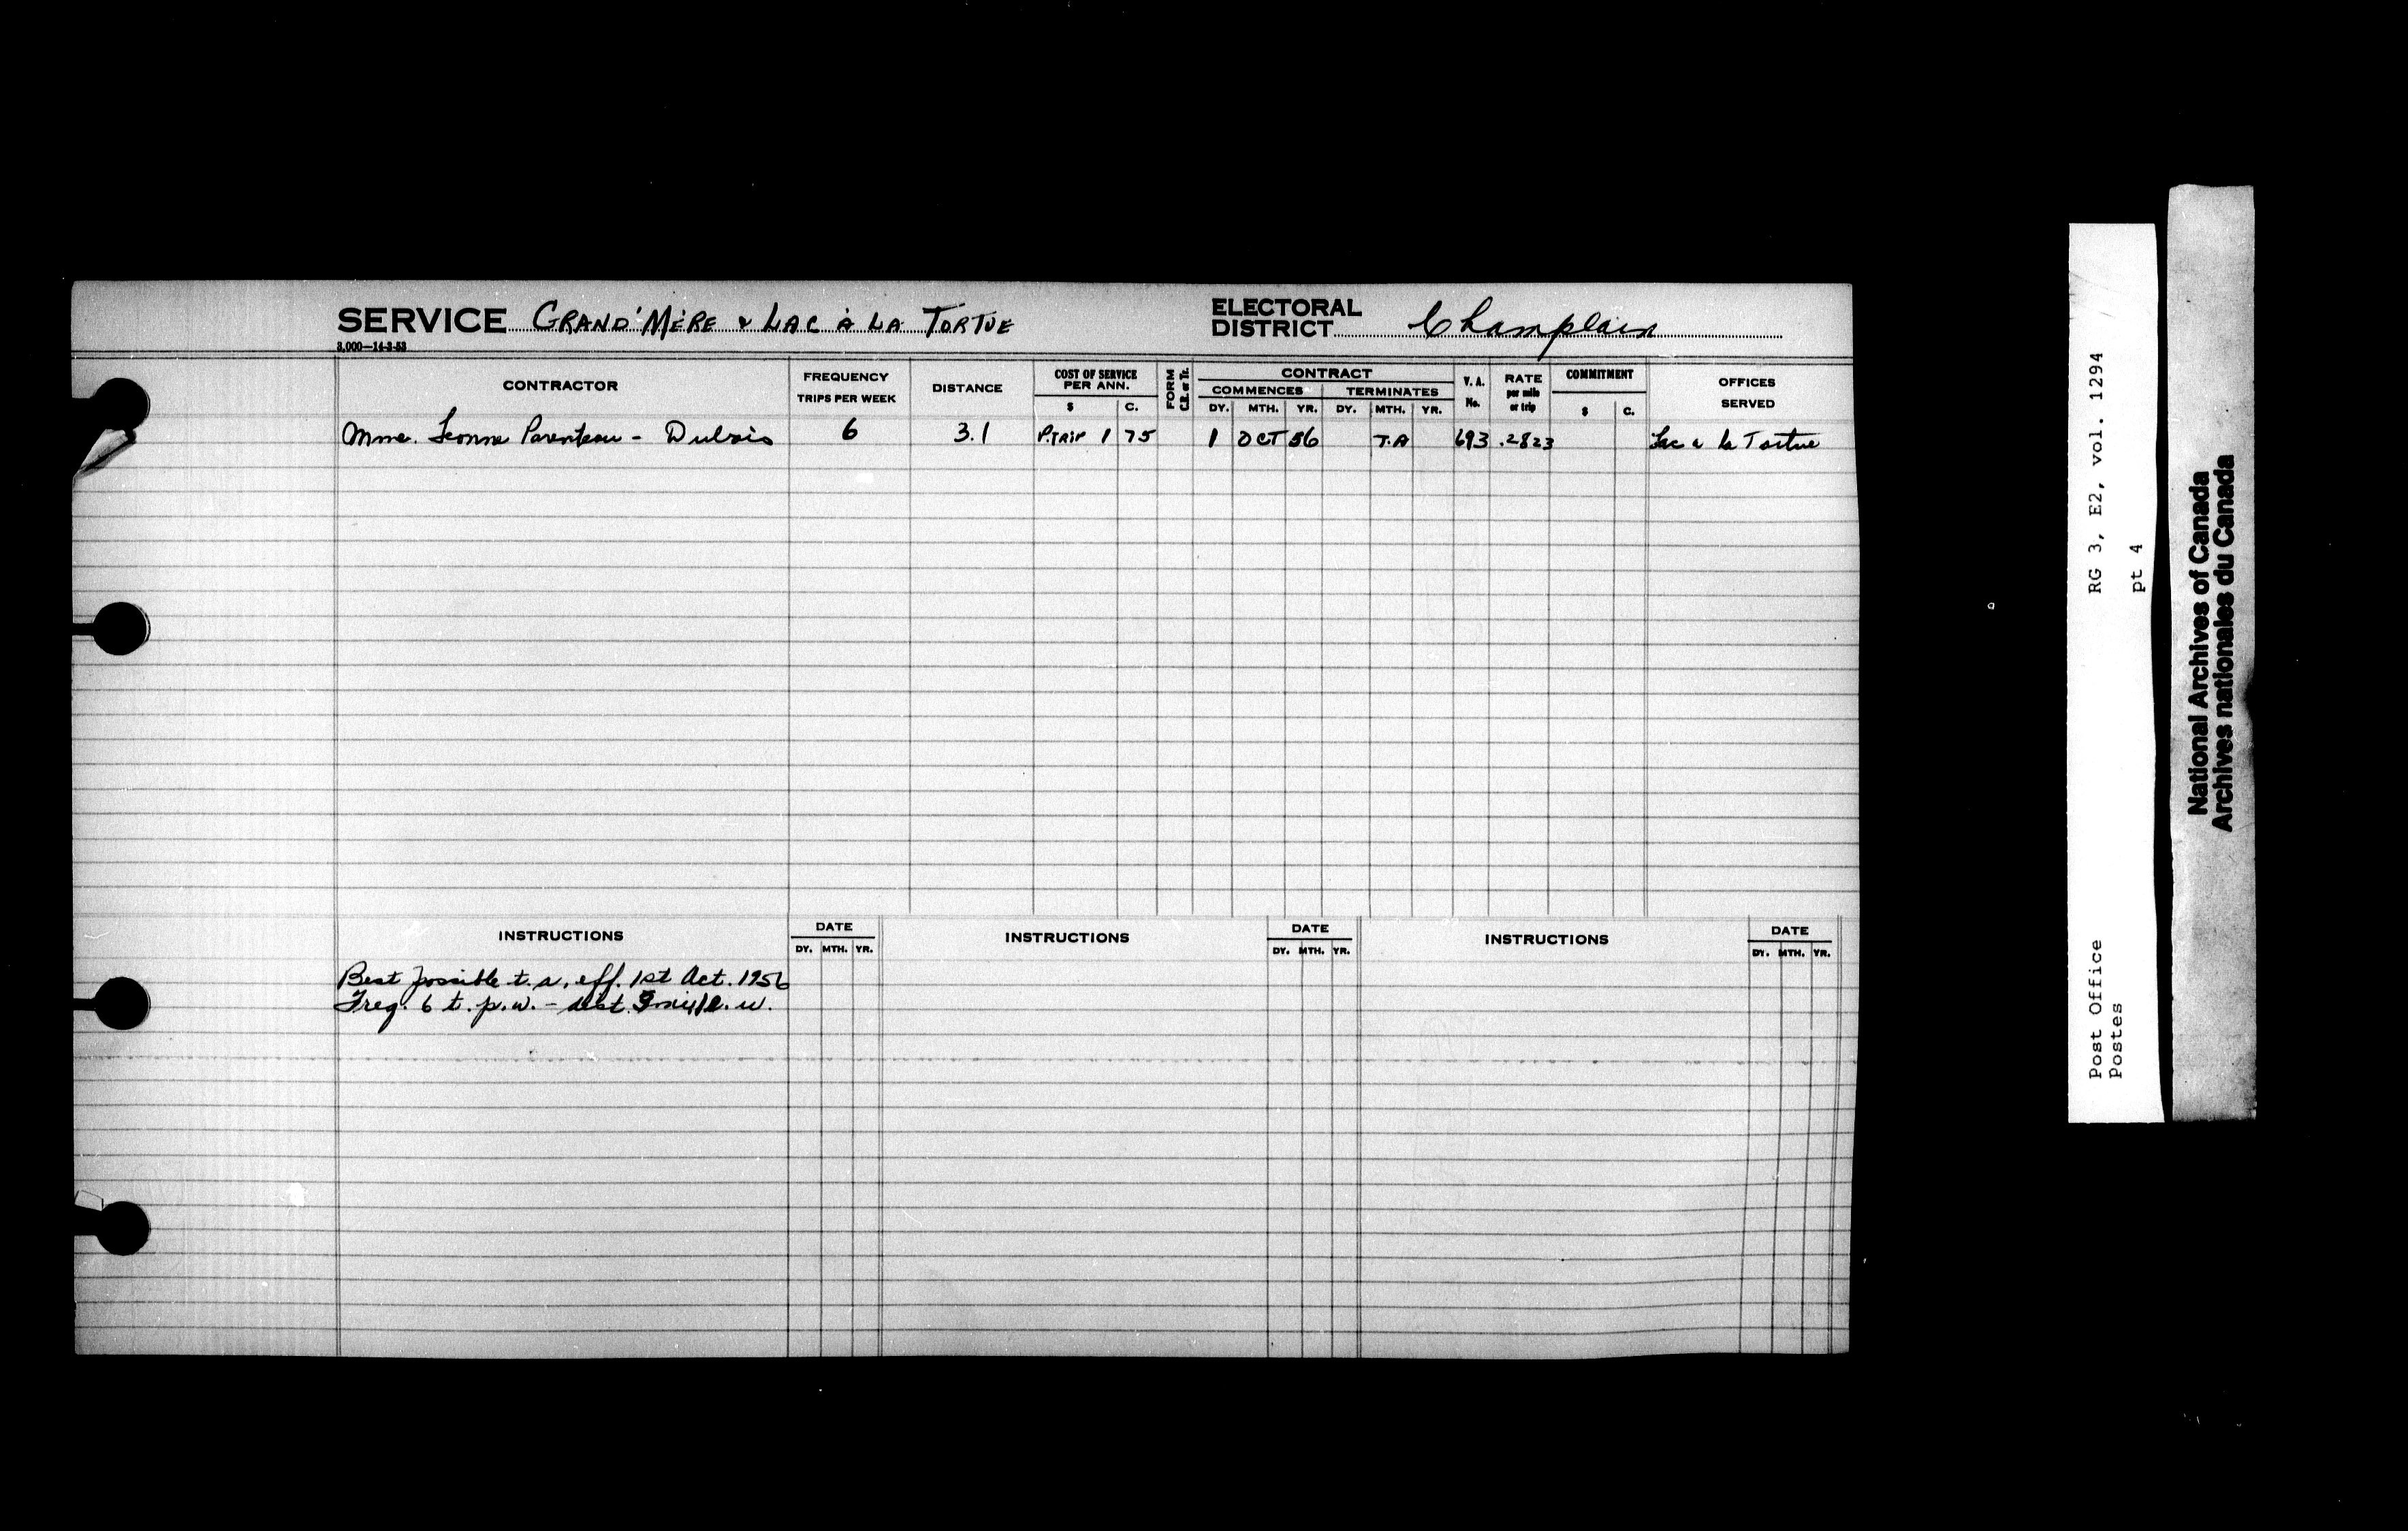 SERVICE GRAND'MÈRE & LAC À LA TORTUE
ELECTORAL DISTRICT Champlain
3,000—14-3-53
CONTRACTOR
FREQUENCY TRIPS PER WEEK
DISTANCE
COST OF SERVICE PER ANN.
$ C.
FORM C.B. or Tr.
CONTRACT
COMMENCES TERMINATES
DY. MTH. YR. DY. MTH. YR.
V. A. No.
RATE per mile or trip
COMMITMENT
$ C.
OFFICES SERVED
Mme. Parenteau - Dubois 6 3.1 P.TRIP 1 75 1 OCT 56 T.A 693 .2823 Lac à la Tortue
INSTRUCTIONS DATE INSTRUCTIONS DATE INSTRUCTIONS DATE
DY. MTH. YR. DY. MTH. YR. DY. MTH. YR.
Best possible t. a. eff. 1st Oct. 1956
Freq. 6 t. p. w. - dist.
RG 3, E2, vol. 1294
pt 4
Post Office
Postes
National Archives of Canada
Archives nationales du Canada